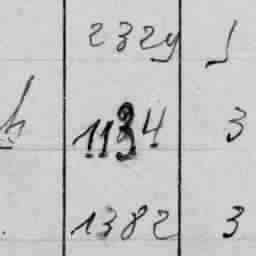 2329
1134 3
1382 3